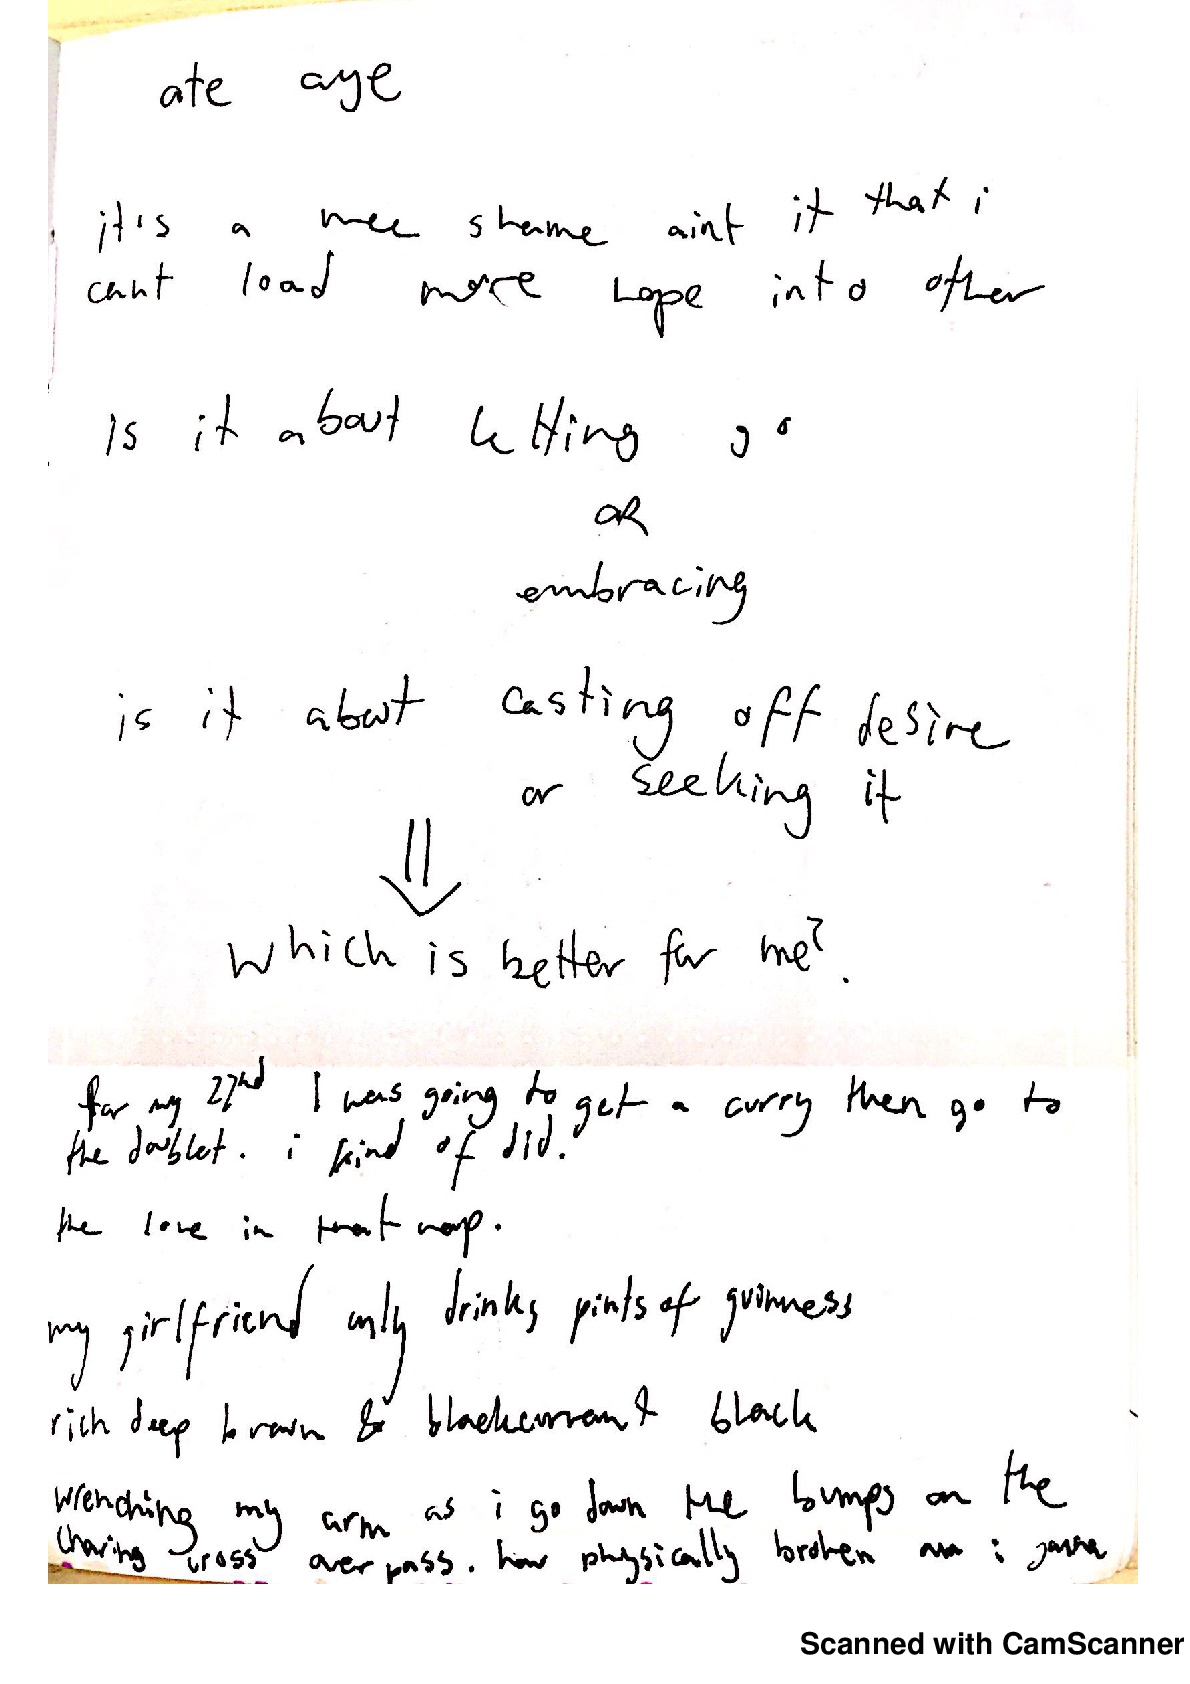 ate aye
it's a wee shame aint it that i
cant load more hope into other
Is it about letting go
OR
embracing
is it about casting off desire
or seeking it
which is better for me?
for my 22nd I was going to get a curry then go to
the doublet. i kind of did.
the love in that
my girlfriend only drinks pints of guinness
rich deep brown & blackcurrant black
wrenching my arm as i go down the bumps on the
charing cross over pass. how physically broken am i gonna
Scanned with CamScanner